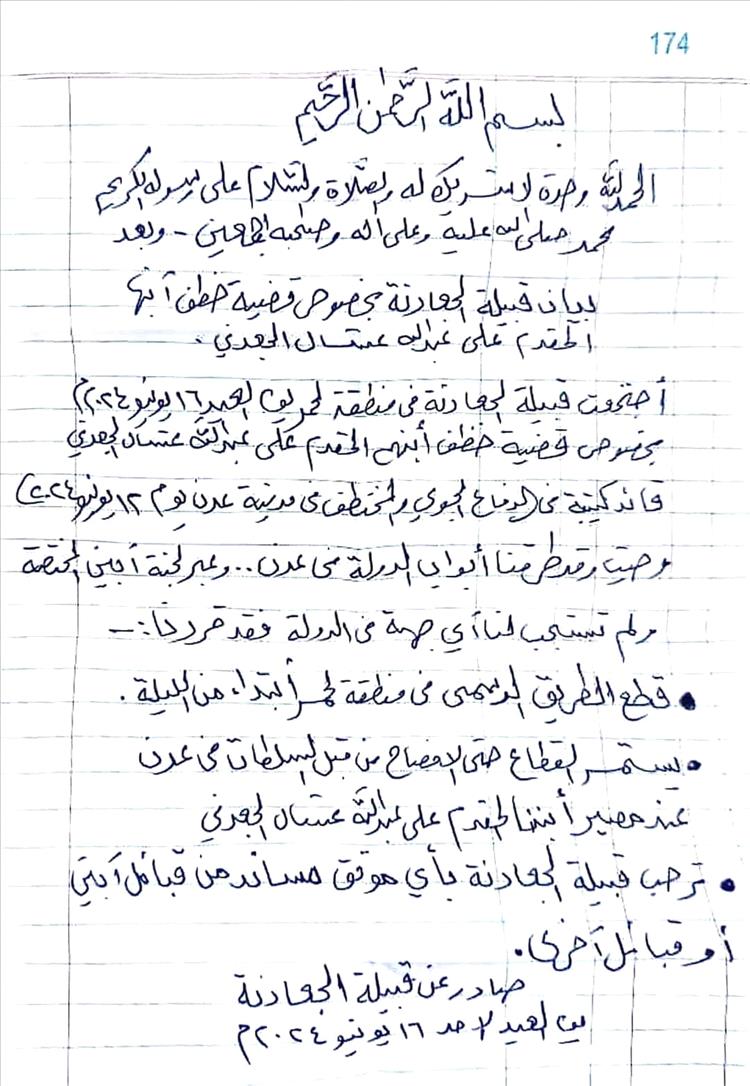 174
بسم الله الرحمن الرحيم
الحمد لله وحدة لا شريك له والصلاة والسلام على رسوله الكريم
محمد صلى الله عليه وعلى آله وصحابه اجمعين - وبعد
بيان قبيلة الجعادنة بخصوص قضية خطف أبنها
المقدم علي عبدالله عشال الجعدني .
أجتمعت قبيلة الجعادنة في منطقة لحمر يوم العيد ١٦ يونيو ٢٠٢٤م
بخصوص قضية خطف أبنهم المقدم علي عبدالله عشال الجعدني
قائد كتيبة في (الدفاع الجوي والمختطف في مدينة عدن يوم ١٢ يونيو ٢٠٢٤)
وحيث وقد طرقنا أبواب الدولة في عدن .. وعبر لجنة أبين المختصة
ولم تستجب لنا أي جهة في الدولة فقد قررنا :-
• قطع الطريق الرسمي في منطقة لحمر أبتداء من الليلة .
• يستمر القطاع حتى الافصاح من قبل السلطات في عدن
عند مصير أبننا المقدم علي عبدالله عشال الجعدني
• ترحب قبيلة الجعادنة بأي موقف مساند من قبائل أبين
أو قبائل أخرى .
صادر عن قبيلة الجعادنة
يوم العيد لاحد ١٦ يونيو ٢٠٢٤م